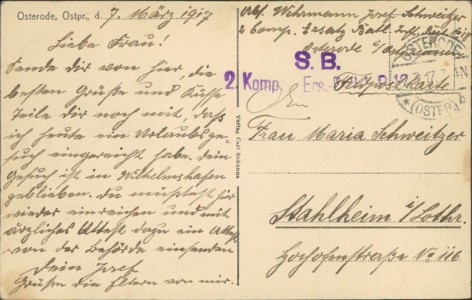 Osterode, Ostpr., d. 7. März 1917
Liebe Frau!
Sende dir von hier, die
besten Grüße und Küsse
teile dir noch mit, dass
ich heute ein Urlaubsge-
such eingereicht habe. dein
Gesuch ist in Wilhelmshafen
geblieben. du müsstest hir
wieder einreichen und mit
ärzliches Attest dazu ein Attest
von der Behörde einsenden
Dein Josef.
Grüsse die Eltern von mir.
Verlag Carl
Abs. Wehrmann Josef Schweitzer
2 Komp. Ersatz Batl. Inf. Reg.
Osterode i/Ostpreussen
S.B.
2. Komp. Ers.
Feldpostkarte
OSTERODE
17.
* (OSTPR.)
Frau Maria Schweitzer
Stahlheim i/Lothr.
Hochofenstraße No 116